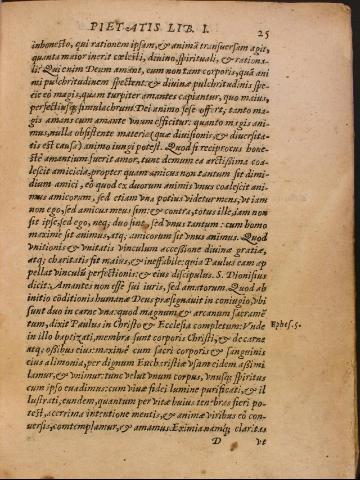 PIETATIS LIB. I. 25
inhonesto, qui rationem ipsam, & animã transuersam agit,
quanta maior inerit cœlesti, diuino, spirituali, & rationa-
li? Qui enim Deum amant, cum non tam corporis, quã ani
mi pulchritudinem spectent: & diuinæ pulchritudinis spe-
cie eò magis, quam turpiter amantes capiantur, quo maius,
perfectiusq; simulachrum Dei animo sese offert, tanto ma-
gis amans cum amante vnum efficitur: quanto magis ani-
mus, nulla obsistente materia (quæ diuisionis, & diuersita-
tis est causa) animo iungi potest. Quod si reciprocus hone-
stè amantium fuerit amor, tunc demum ea arctissima coa-
lescit amicicia, propter quam amicus non tantum sit dimi-
dium amici, eò quod ex duorum animis vnus coalescit ani-
mus amicorum, sed etiam vna potius videtur mens, vt iam
non ego, sed amicus meus sim: & contra, totus ille, iam non
sit ipse, sed ego, neq; duo sint, sed vnus tantum: cum homo
maximè sit animus, atq; amicorum sit vnus animus. Quod
vnitionis & vnitatis vinculum accessione diuinæ gratiæ,
atq; charitatis fit maius, & ineffabile: quia Paulus eam ap
pellat vinculũ perfectionis: & eius discipulus. S. Dionysius
dicit: Amantes non esse sui iuris, sed amatorum. Quod ab
initio cõditionis humanæ Deus præsignauit in coniugio, vbi
sunt duo in carne vna: quod magnum & arcanum sacramē
tum, dixit Paulus in Christo & Ecclesia completum: Vnde
Ephes. 5.
in illo baptizati, membra sunt corporis Christi, & de carne
atq; ossibus eius: maximè cum sacri corporis & sanguinis
eius alimonia, per dignum Eucharistiæ vsum eidem assimi
lamur, & vnimur: tunc velut vnum corpus, vnusq; spiritus
cum ipso euadimus: cum viuæ fidei lumine purificati, & il
lustrati, eundem, quantum per vitæ huius tenebras fieri po-
test, acerrima intentione mentis, & animæ viribus eò con-
uersis, comtemplamur, & amamus. Eximia namq; claritas
D ve